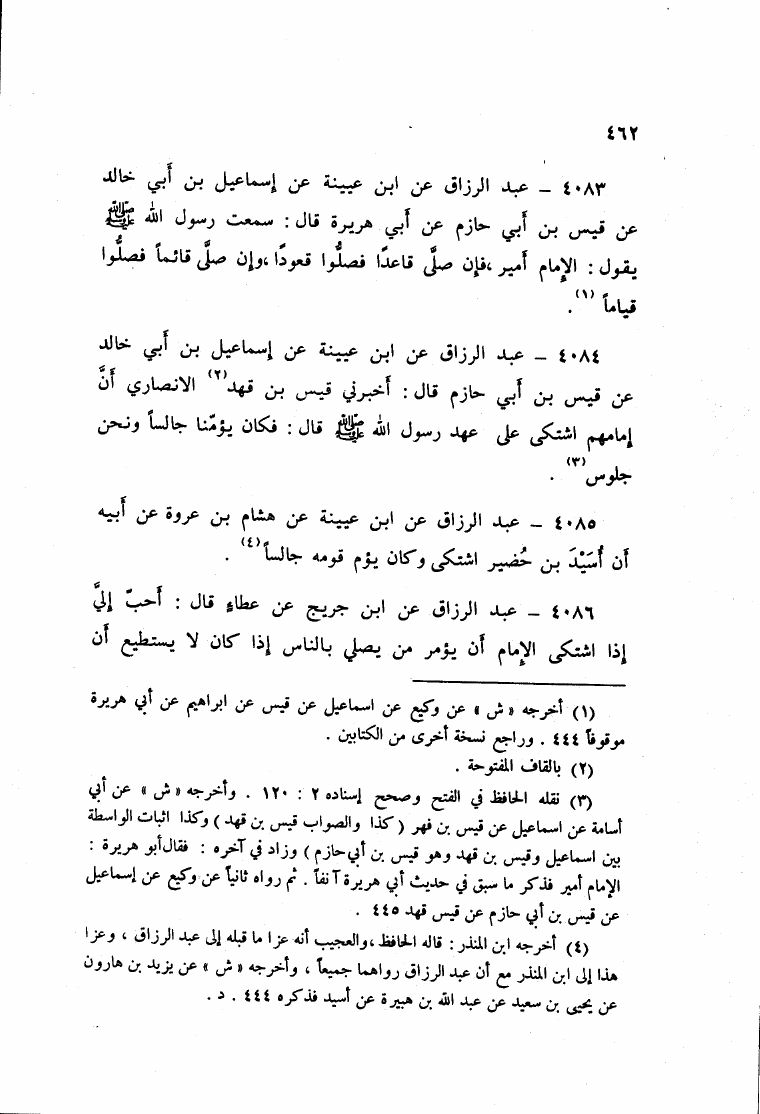 ٤٦٢
٤٠٨٣ – عبد الرزاق عن ابن عيينة عن إسماعيل بن أبي خالد
عن قيس بن أبي حازم عن أبي هريرة قال : سمعت رسول الله ﷺ
يقول : الإمام أمير ،فإن صلَّى قاعدًا فصلُّوا قعودًا،وإن صلَّى قائماً فصلُّوا
قياماً (١) .
٤٠٨٤ – عبد الرزاق عن ابن عيينة عن إسماعيل بن أبي خالد
عن قيس بن أبي حازم قال : أخبرني قيس بن قهد(٢) الانصاري أنَّ
إمامهم اشتكى على عهد رسول الله ﷺ قال : فكان يؤمّنا جالساً ونحن
جلوس(٣) .
٤٠٨٥ – عبد الرزاق عن ابن عيينة عن هشام بن عروة عن أبيه
أن أُسَيْدَ بن حُضير اشتكى وكان يؤم قومه جالساً(٤) .
٤٠٨٦ – عبد الرزاق عن ابن جريج عن عطاءٍ قال : أحبّ إليَّ
إذا اشتكى الإمام أن يؤمر من يصلي بالناس إذا كان لا يستطيع أن
(١) أخرجه « ش » عن وكيع عن اسماعيل عن قيس عن ابراهيم عن أبي هريرة
موقوفاً ٤٤٤ . وراجع نسخة أخرى من الكتابين .
(٢) بالقاف المفتوحة .
(٣) نقله الحافظ في الفتح وصحح إسناده ٢ : ١٢٠ . وأخرجه « ش » عن أبي
أسامة عن اسماعيل عن قيس بن فهر ( كذا والصواب قيس بن قهد ) وكذا اثبات الواسطة
بين اسماعيل وقيس بن قهد وهو قيس بن أبي حازم ) وزاد في آخره : فقال أبو هريرة :
الإمام أمير فذكر ما سبق في حديث أبي هريرة آنفاً . ثم رواه ثانياً عن وكيع عن إسماعيل
عن قيس بن أبي حازم عن قيس قهد ٤٤٥ .
(٤) أخرجه ابن المنذر : قاله الحافظ ،والعجيب أنه عزا ما قبله إلى عبد الرزاق ، وعزا
هذا إلى ابن المنذر مع أن عبد الرزاق رواهما جميعاً ، وأخرجه « ش » عن يزيد بن هارون
عن يحيى بن سعيد عن عبد الله بن هبيرة عن أسيد فذكره ٤٤٤ . د .